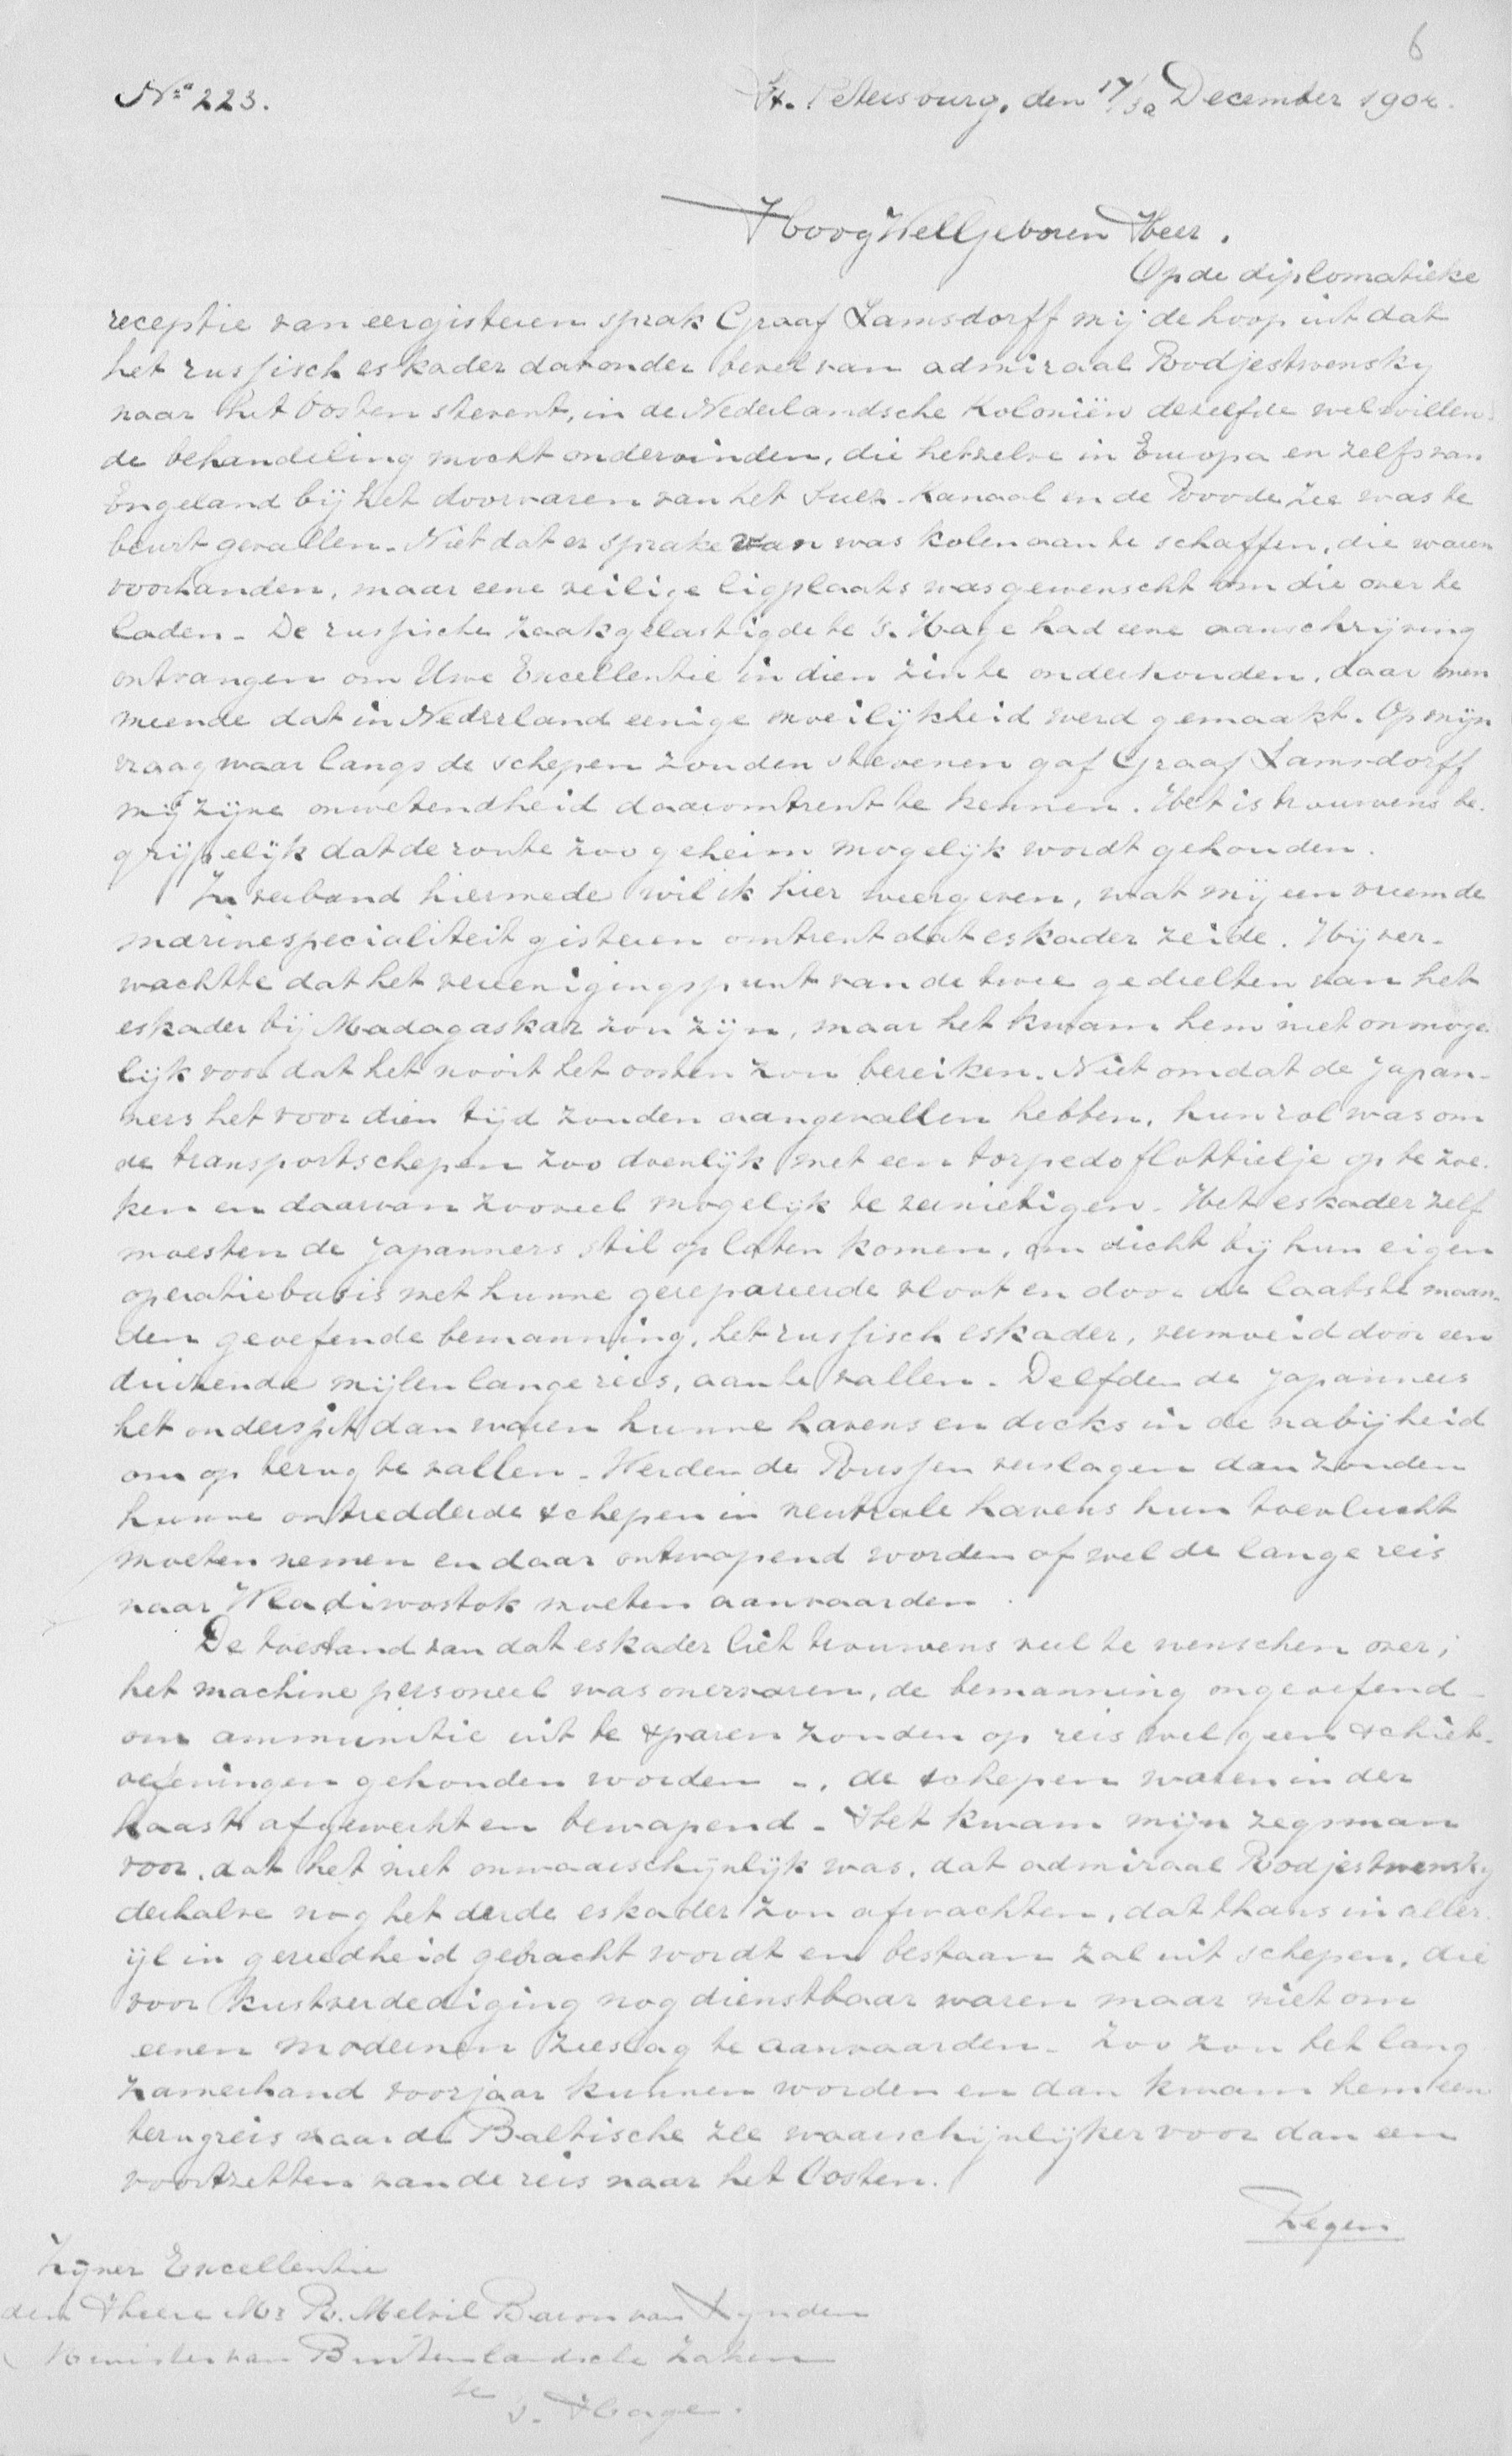 6
No 223.
St. Petersburg, den 17/30 December 1904.
HoogWelGeboren Heer.
Op de diplomatieke
receptie van eergisteren sprak Graaf Lamsdorff mij de hoop uit dat
het russisch eskader dat onder bevel van admiraal Rodjestwensky
naar het Oosten stevent, in de Nederlandsche Koloniën dezelfde welwillen-
de behandeling mocht ondervinden, die hetzelve in Europa en zelfs van
Engeland bij het doorvaren van het Suez-Kanaal en de Roode Zee was te
beurt gevallen. Niet dat er sprake van was kolen aan te schaffen, die waren
voorhanden, maar eene veilige ligplaats was gewenscht om die over te
laden. De russische zaakgelastigde te 's. Hage had eene aanschrijving
ontvangen om Uwe Excellentie in dien zin te onderhouden, daar men
meende dat in Nederland eenige moeilijkheid werd gemaakt. Op mijn
vraag waar langs de schepen zouden stevenen gaf Graaf Lamsdorff
mij zijne onwetendheid daaromtrent te kennen. Het is trouwens be-
grijpelijk dat de route zoo geheim mogelijk wordt gehouden.
In verband hiermede wil ik hier weergeven, wat mij een vreemde
marinespecialiteit gisteren omtrent dat eskader zeide. Hij ver-
wachtte dat het vereenigingspunt van de twee gedeelten van het
eskader bij Madagaskar zou zijn, maar het kwam hem niet onmoge-
lijk voor dat het nooit het oosten zou bereiken. Niet omdat de Japan-
ners het voor dien tijd zouden aangevallen hebben, hun rol was om
de transportschepen zoo doenlijk met een torpedoflottielje op te zoe-
ken en daarvan zooveel mogelijk te vernietigen. Het eskader zelf
moesten de Japanners stil op laten komen, om dicht bij hun eigen
operatiebasis met hunne gerepareerde vloot en door de laatste maan-
den geoefende bemanning, het russisch eskader, vermoeid door een
duizende mijlen lange reis, aan te vallen. Delfden de Japanners
het onderspit dan waren hunne havens en docks in de nabijheid
om op terug te vallen. Werden de Russen verslagen dan zouden
hunne ontredderde schepen in neutrale havens hun toevlucht
moeten nemen en daar ontwapend worden of wel de lange reis
naar Wladiwostok moeten aanvaarden.
De toestand van dat eskader liet trouwens veel te wenschen over;
het machine personeel was onervaren, de bemanning ongeoefend -
om ammunitie uit te sparen zouden op reis wel geen schiet-
oefeningen gehouden worden -, de schepen waren in der
haast afgewerkt en bewapend. Het kwam mijn zegsman
voor, dat het niet onwaarschijnlijk was, dat admiraal Rodjestwensky
derhalve nog het derde eskader zou afwachten, dat thans in aller-
ijl in gereedheid gebracht wordt en bestaan zal uit schepen, die
voor kustverdediging nog dienstbaar waren maar niet om
eenen modernen zeeslag te aanvaarden. Zoo zou het lang
zamerhand voorjaar kunnen worden en dan kwam hem een
terugreis naar de Baltische zee waarschijnlijker voor dan een
voortzetten van de reis naar het Oosten.
Tegen
Zijner Excellentie
den Heere Mr R. Melvil Baron van Lynden
Minister van Buitenlandsche Zaken
te
's. Hage.